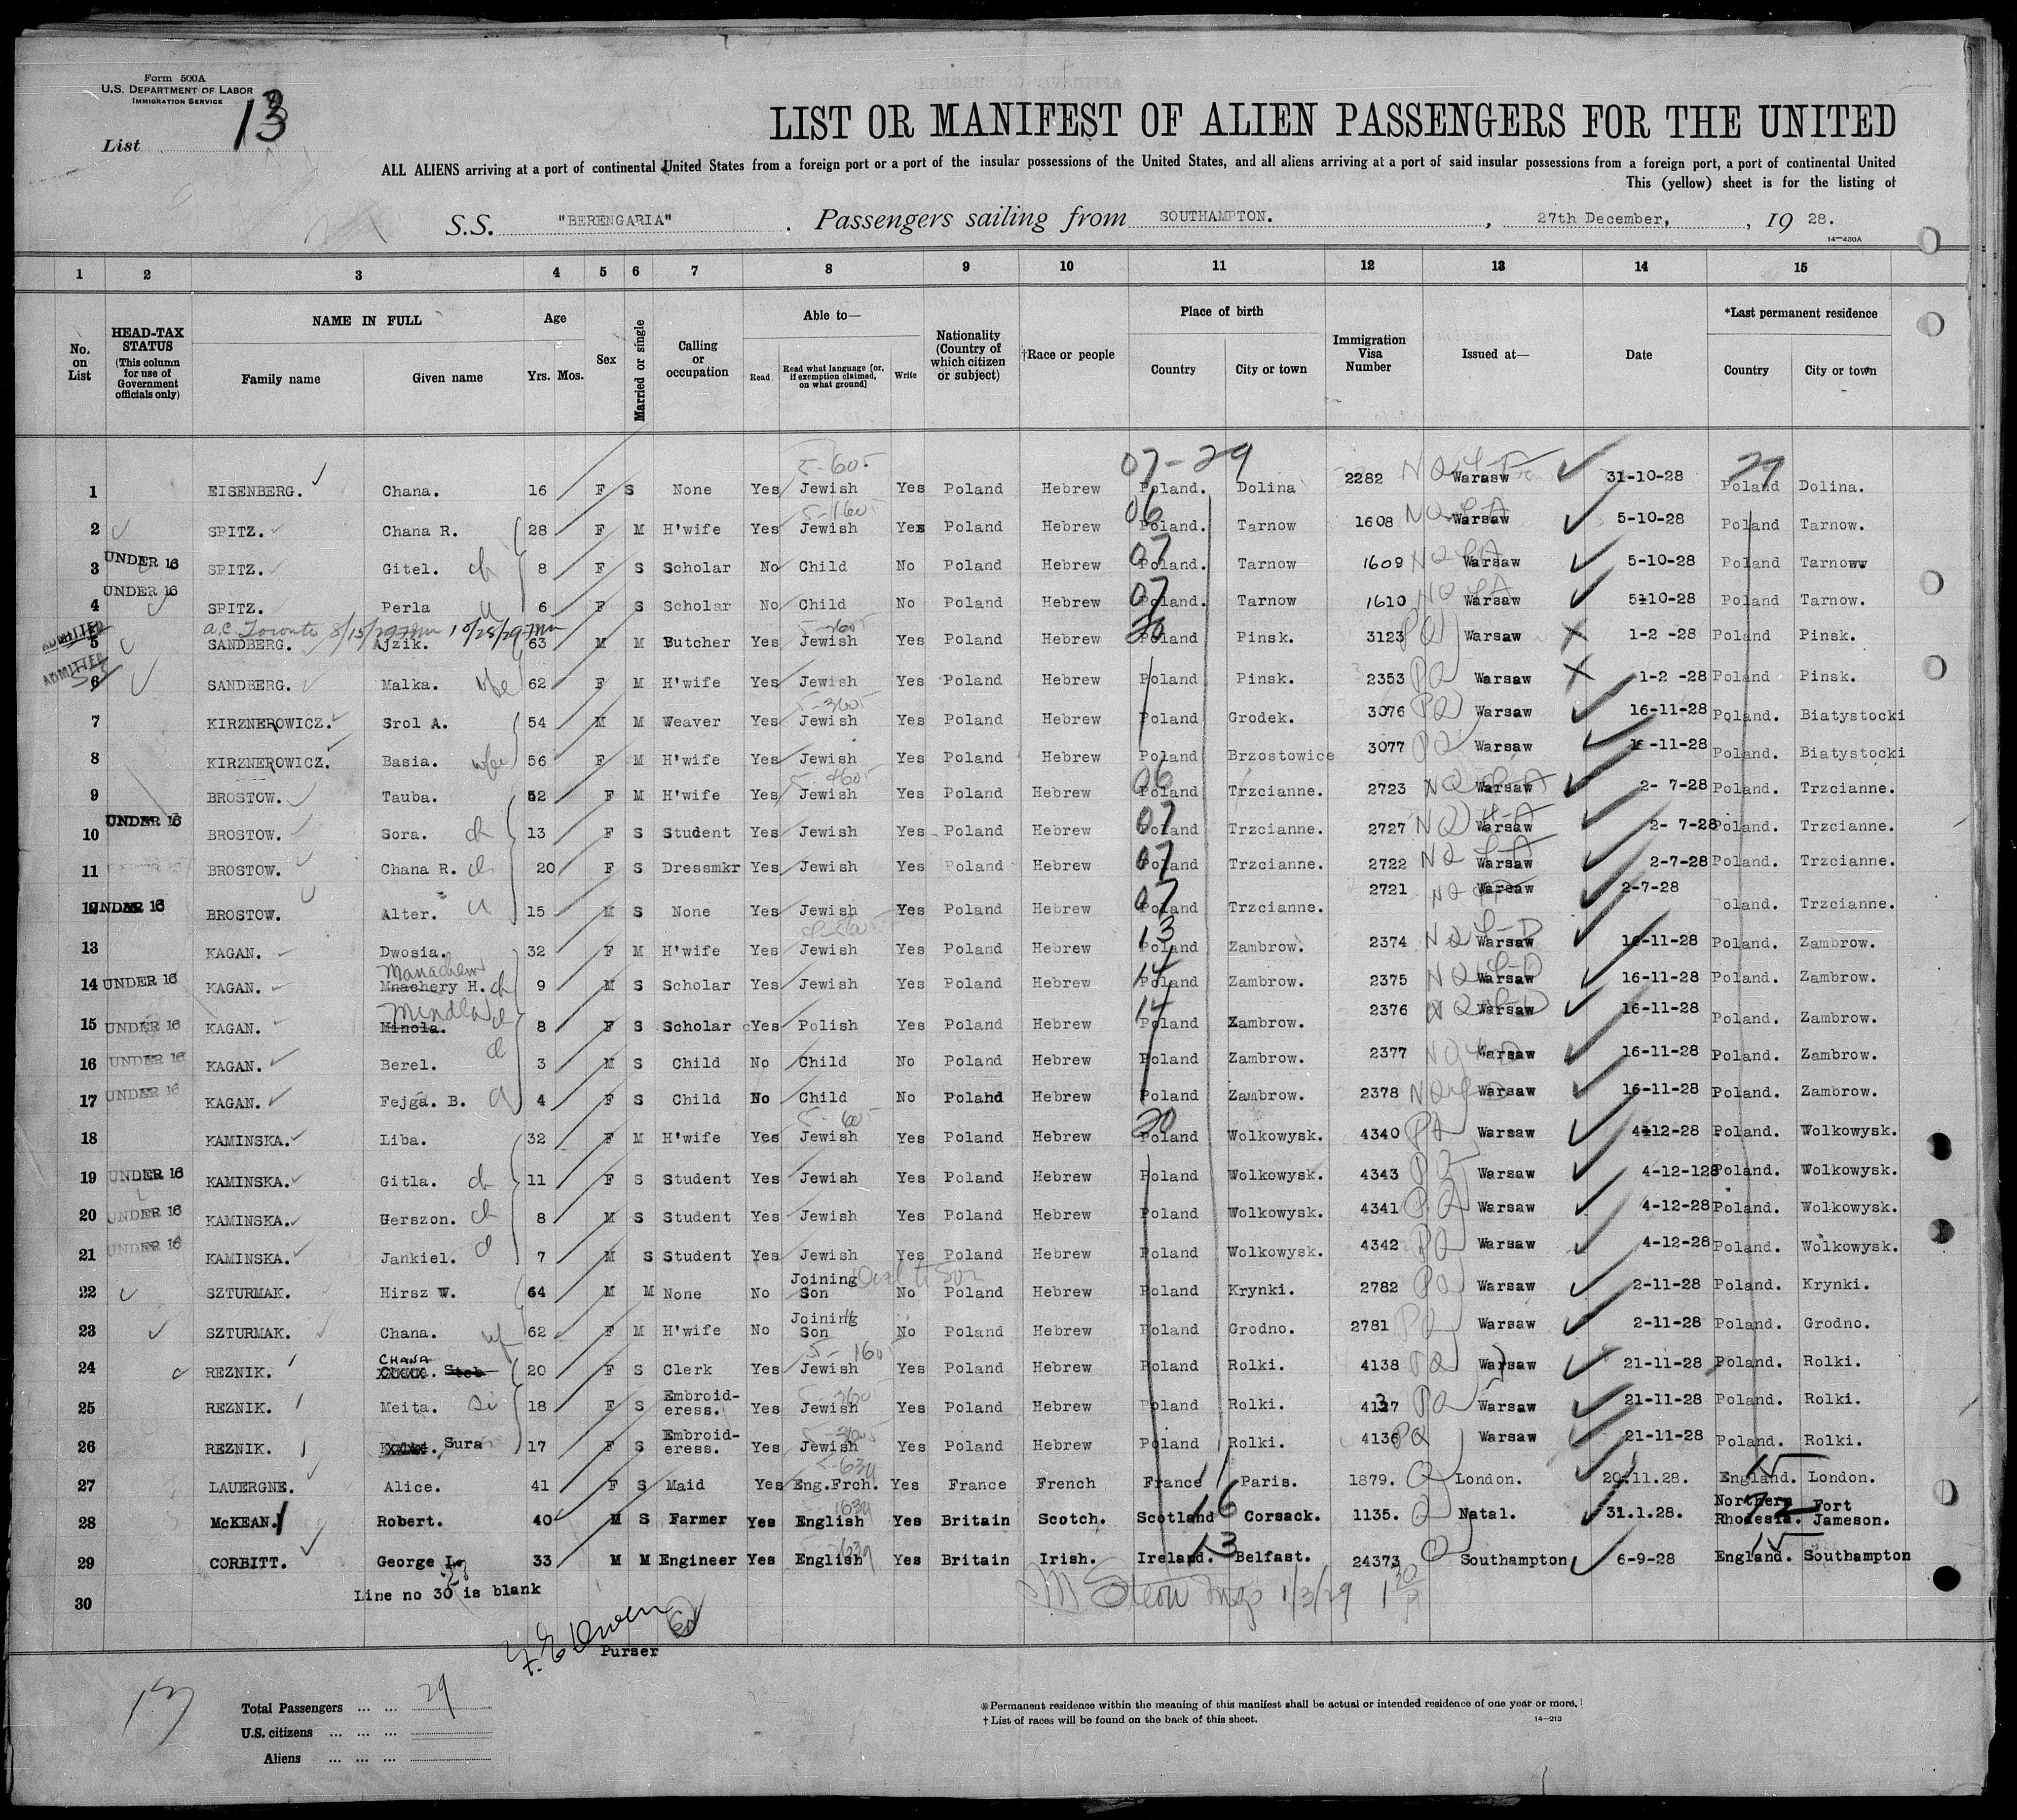 Form 500A
U.S. DEPARTMENT OF LABOR
IMMIGRATION SERVICE
List 13
LIST OR MANIFEST OF ALIEN PASSENGERS FOR THE UNITED
ALL ALIENS arriving at a port of continental United States from a foreign port or a port of the insular possessions of the United States, and all aliens arriving at a port of said insular possessions from a foreign port, a port of continental United
This (yellow) sheet is for the listing of
S.S. "BERENGARIA" . Passengers sailing from SOUTHAMPTON. , 27th December, , 19 28.
14—430A
1 2 3 4 5 6 7 8 9 10 11 12 13 14 15
No. on List
HEAD-TAX STATUS (This column for use of Government officials only)
NAME IN FULL
Family name Given name
Age
Yrs. Mos.
Sex
Married or single
Calling or occupation
Able to—
Read Read what language [or, if exemption claimed, on what ground] Write
Nationality (Country of which citizen or subject)
†Race or people
Place of birth
Country City or town
Immigration Visa Number
Issued at—
Date
*Last permanent residence
Country City or town
5-605 07-29 27
1 EISENBERG. Chana. 16 F S None Yes Jewish Yes Poland Hebrew Poland. Dolina 2282 Warasw 31-10-28 Poland Dolina.
2 SPITZ. Chana R. 28 F M H'wife Yes Jewish Yes Poland Hebrew 06 Poland. Tarnow 1608 NQ Warsaw 5-10-28 Poland Tarnow.
3 UNDER 16 SPITZ. Gitel. ch 8 F S Scholar No Child No Poland Hebrew 07 Poland. Tarnow 1609 NQ Warsaw 5-10-28 Poland Tarnoww
4 UNDER 16 SPITZ. Perla 6 F S Scholar No Child No Poland Hebrew 07 Poland. Tarnow 1610 NQ Warsaw 5-10-28 Poland Tarnow.
a.c. Toronto 8/15/29 10/25/29
5 ADMITTED SANDBERG. Ajzik. 63 M M Butcher Yes Jewish Yes Poland Hebrew 20 Poland Pinsk. 3123 PQ Warsaw 1-2 -28 Poland Pinsk.
6 ADMITTED SANDBERG. Malka. wfe 62 F M H'wife Yes Jewish Yes Poland Hebrew Poland Pinsk. 2353 PQ Warsaw 1-2 -28 Poland Pinsk.
7 KIRZNEROWICZ. Srol A. 54 M M Weaver Yes Jewish Yes Poland Hebrew Poland Grodek. 3076 PQ Warsaw 16-11-28 Poland. Biatystocki
8 KIRZNEROWICZ. Basia. wfe 56 F M H'wife Yes Jewish Yes Poland Hebrew Poland Brzostowice 3077 PQ Warsaw 16-11-28 Poland. Biatystocki
9 BROSTOW. Tauba. 52 F M H'wife Yes Jewish Yes Poland Hebrew 06 Poland Trzcianne. 2723 NQ Warsaw 2- 7-28 Poland. Trzcianne.
10 UNDER 16 BROSTOW. Sora. ch 13 F S Student Yes Jewish Yes Poland Hebrew 07 Poland Trzcianne. 2727 NQ Warsaw 2- 7-28 Poland. Trzcianne.
11 BROSTOW. Chana R. 20 F S Dressmkr Yes Jewish Yes Poland Hebrew 07 Poland Trzcianne. 2722 NQ Warsaw 2-7-28 Poland. Trzcianne.
12 UNDER 16 BROSTOW. Alter. 15 M S None Yes Jewish Yes Poland Hebrew 07 Poland Trzcianne. 2721 NQ Warsaw 2-7-28 Poland. Trzcianne.
13 KAGAN. Dwosia. 32 F M H'wife Yes Jewish Yes Poland Hebrew 13 Poland Zambrow. 2374 NQ Warsaw 16-11-28 Poland. Zambrow.
Manachem
14 UNDER 16 KAGAN. Mnachery H. ch 9 M S Scholar Yes Jewish Yes Poland Hebrew 14 Poland Zambrow. 2375 NQ Warsaw 16-11-28 Poland. Zambrow.
Mindla
15 UNDER 16 KAGAN. Minola. 8 F S Scholar Yes Polish Yes Poland Hebrew 14 Poland Zambrow. 2376 Warsaw 16-11-28 Poland. Zambrow.
16 UNDER 16 KAGAN. Berel. 3 M S Child No Child No Poland Hebrew Poland Zambrow. 2377 NQ Warsaw 16-11-28 Poland. Zambrow.
17 UNDER 16 KAGAN. Fejga. B. 4 F S Child No Child No Poland Hebrew Poland Zambrow. 2378 NQ Warsaw 16-11-28 Poland. Zambrow.
18 KAMINSKA. Liba. 32 F M H'wife Yes Jewish Yes Poland Hebrew 20 Poland Wolkowysk. 4340 PQ Warsaw 4-12-28 Poland. Wolkowysk.
19 UNDER 16 KAMINSKA. Gitla. ch 11 F S Student Yes Jewish Yes Poland Hebrew Poland Wolkowysk. 4343 PQ Warsaw 4-12-128 Poland. Wolkowysk.
20 UNDER 16 KAMINSKA. Herszon. ch 8 M S Student Yes Jewish Yes Poland Hebrew Poland Wolkowysk. 4341 PQ Warsaw 4-12-28 Poland. Wolkowysk.
21 UNDER 16 KAMINSKA. Jankiel. 7 M S Student Yes Jewish Yes Poland Hebrew Poland Wolkowysk. 4342 PQ Warsaw 4-12-28 Poland. Wolkowysk.
22 SZTURMAK. Hirsz W. 64 M M None No Joining Son No Poland Hebrew Poland Krynki. 2782 PQ Warsaw 2-11-28 Poland. Krynki.
23 SZTURMAK. Chana. wf 62 F M H'wife No Joining Son No Poland Hebrew Poland Grodno. 2781 PQ Warsaw 2-11-28 Poland. Grodno.
24 REZNIK. CHANA 20 F S Clerk Yes Jewish Yes Poland Hebrew Poland Rolki. 4138 PQ Warsaw 21-11-28 Poland. Rolki.
25 REZNIK. Meita. Si 18 F S Embroid-eress. Yes Jewish Yes Poland Hebrew Poland Rolki. 4137 PQ Warsaw 21-11-28 Poland. Rolki.
26 REZNIK. Sura 17 F S Embroid-eress. Yes Jewish Yes Poland Hebrew Poland Rolki. 4136 PQ Warsaw 21-11-28 Poland. Rolki.
27 LAUERGNE. Alice. 41 F S Maid Yes Eng.Frch. Yes France French France Paris. 1879. Q London. 20.11.28. England. 15 London.
28 McKEAN. Robert. 40 M S Farmer Yes English Yes Britain Scotch. Scotland 16 Corsack. 1135. Q Natal. 31.1.28. Northern Rhodesia. 72 Fort Jameson.
29 CORBITT. George L. 33 M M Engineer Yes English Yes Britain Irish. Ireland. 13 Belfast. 24373 Q Southampton 6-9-28 England. 15 Southampton
Line no 30 is blank
30
1/3/29
Purser
13
Total Passengers ... ... 29
U.S. citizens ... ... ...
Aliens ... ... ...
*Permanent residence within the meaning of this manifest shall be actual or intended residence of one year or more.
† List of races will be found on the back of this sheet.
14—213